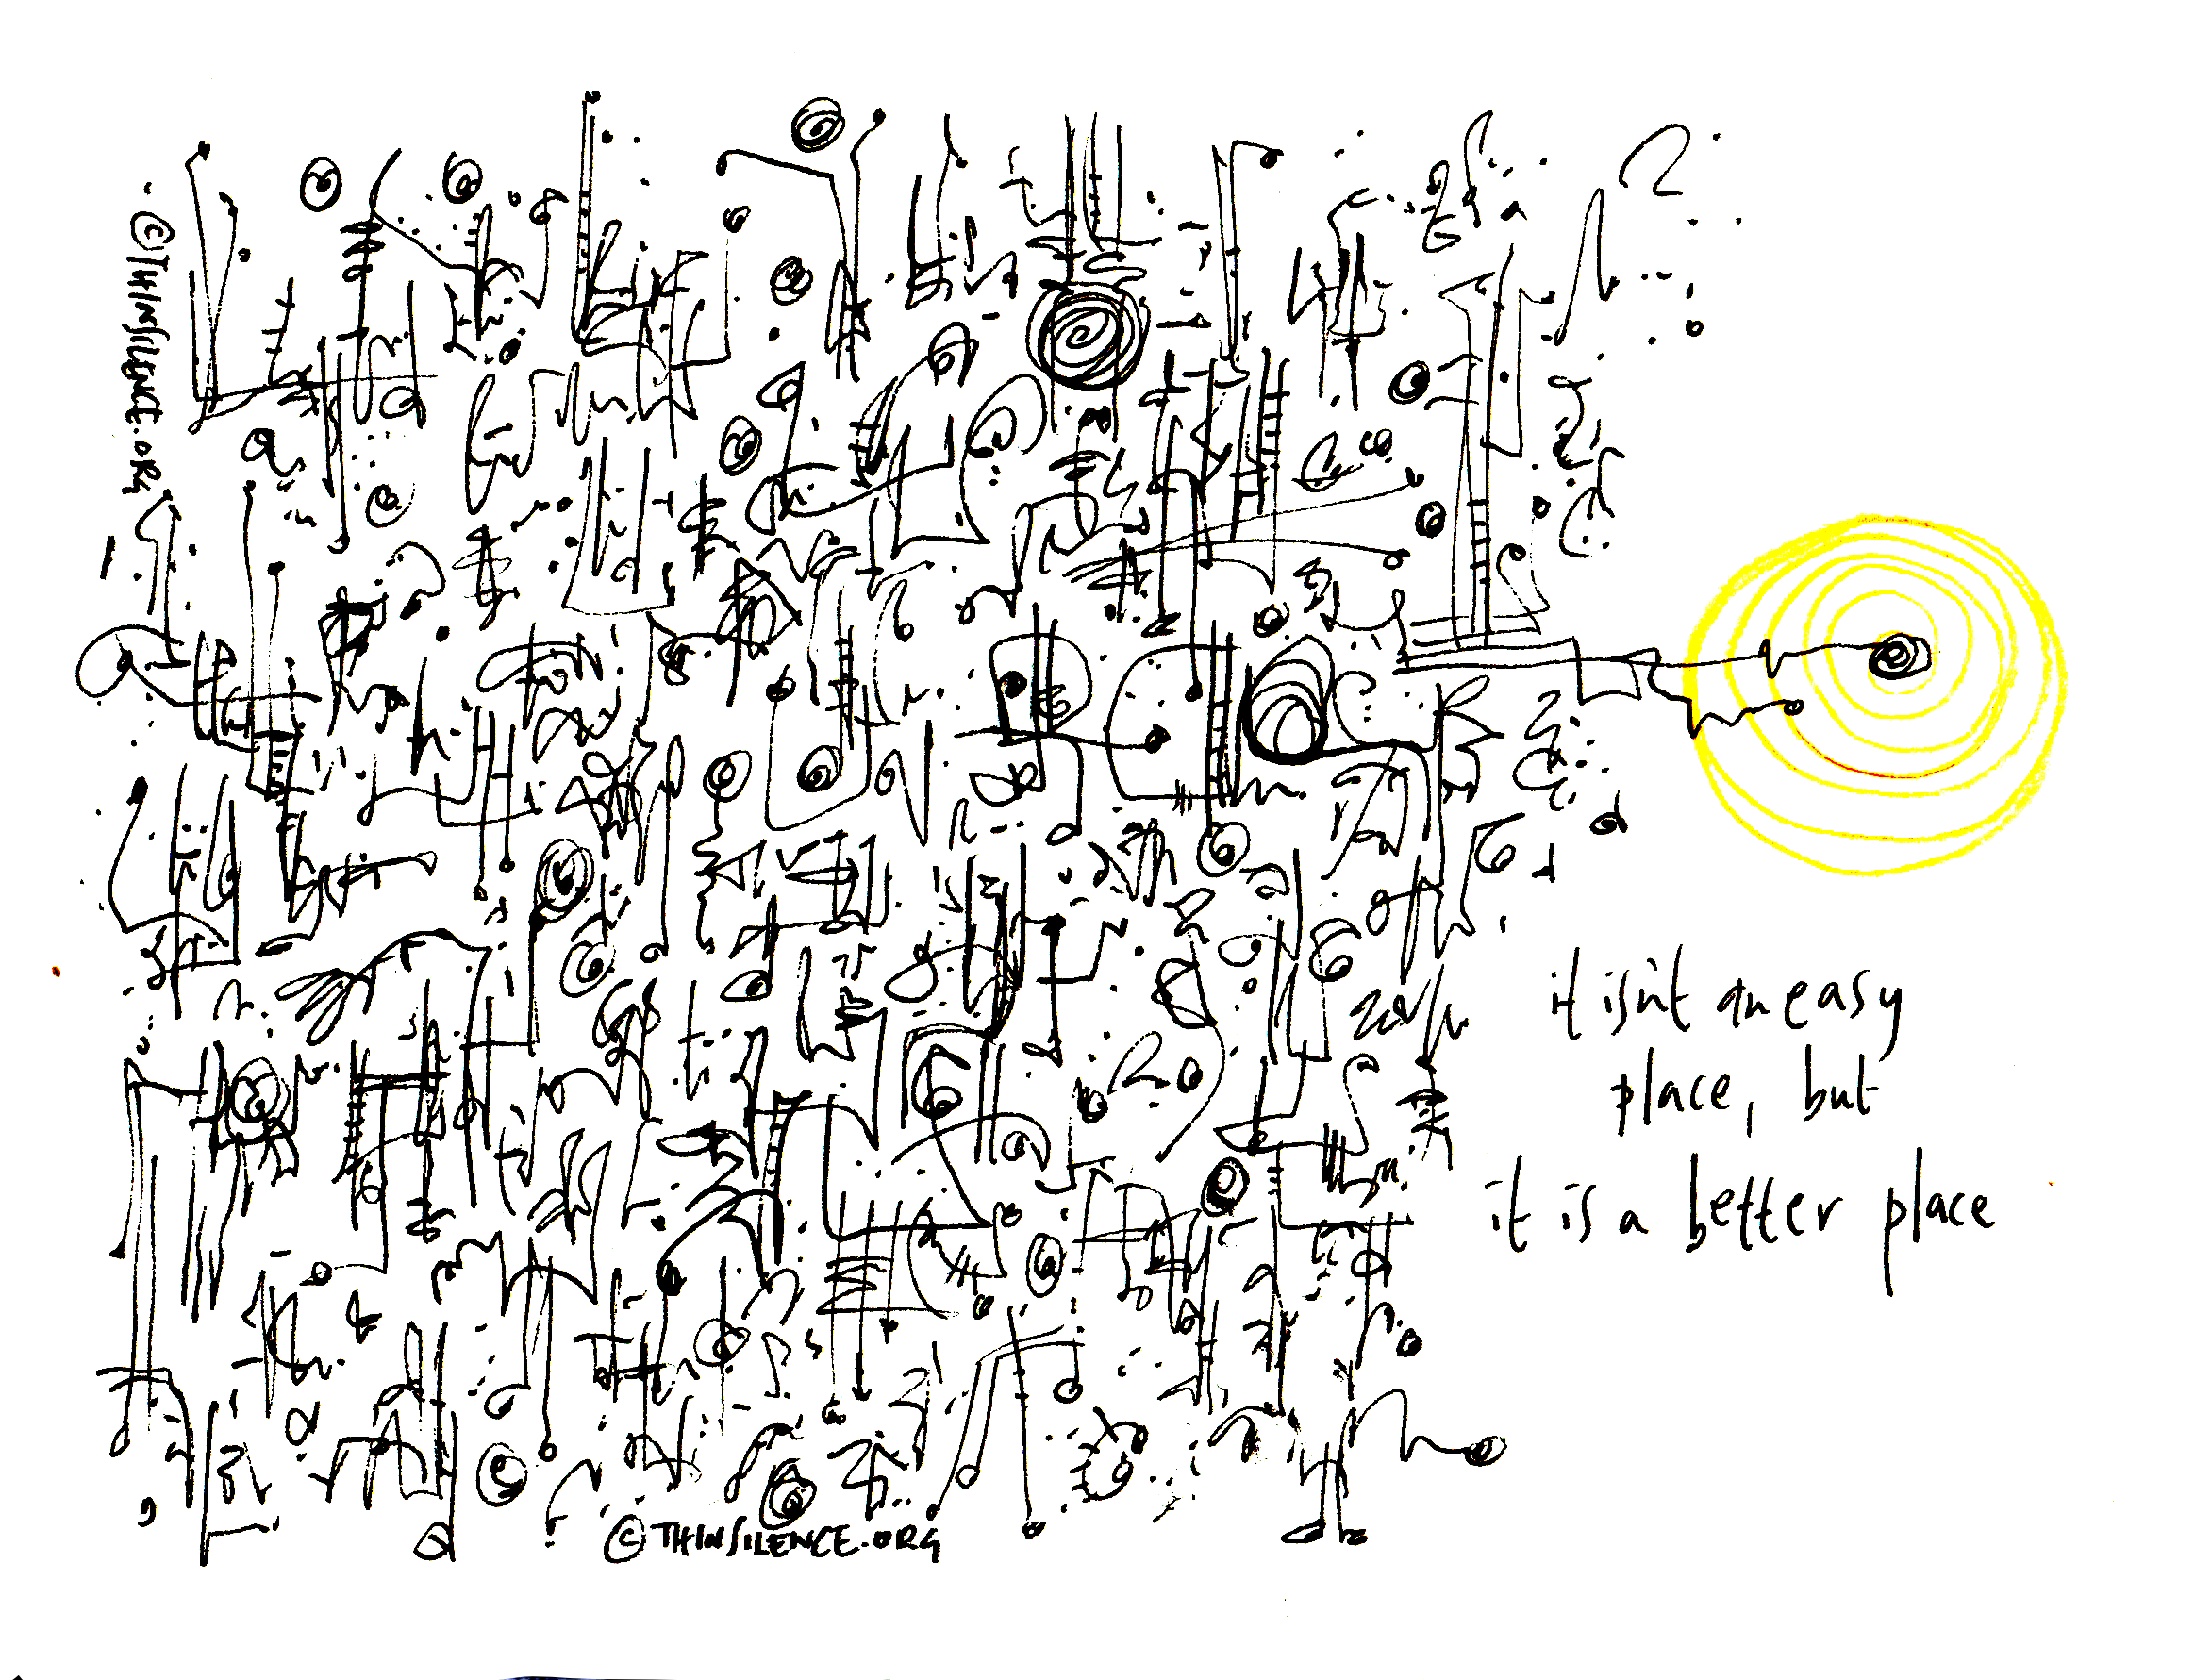 ©THINSILENCE.ORG
it isn't an easy
place, but
it is a better place
©THINSILENCE.ORG